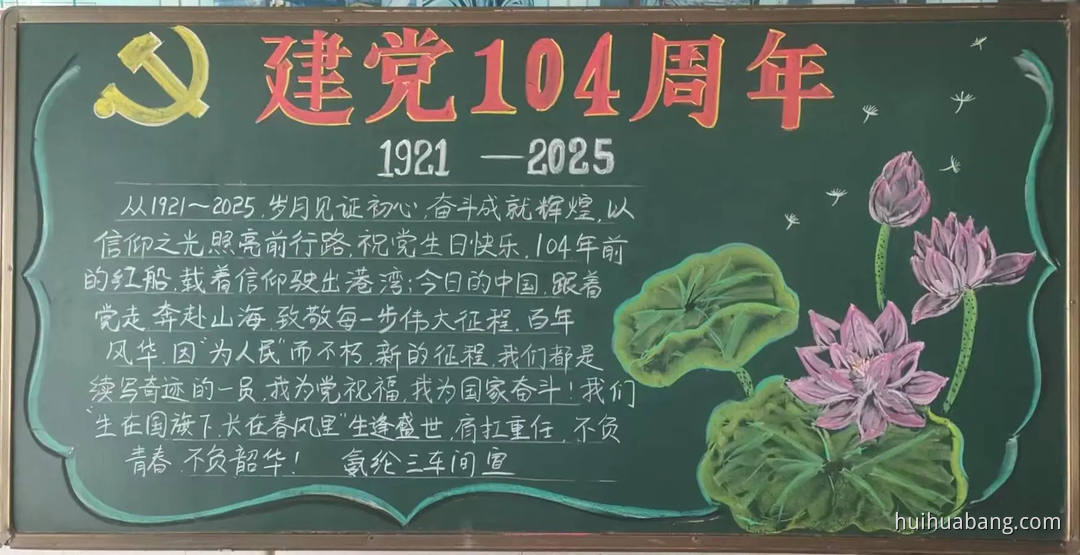 建党104周年
1921 —2025
从1921~2025,岁月见证初心,奋斗成就辉煌,以
信仰之光照亮前行路,祝党生日快乐,104年前
的红船,载着信仰驶出港湾;今日的中国,跟着
党走,奔赴山海,致敬每一步伟大征程,百年
风华,因“为人民”而不朽,新的征程,我们都是
续写奇迹的一员,我为党祝福,我为国家奋斗!我们
“生在国旗下,长在春风里”生逢盛世,肩扛重任,不负
青春,不负韶华! 氨纶三车间宣
huihuabang.com